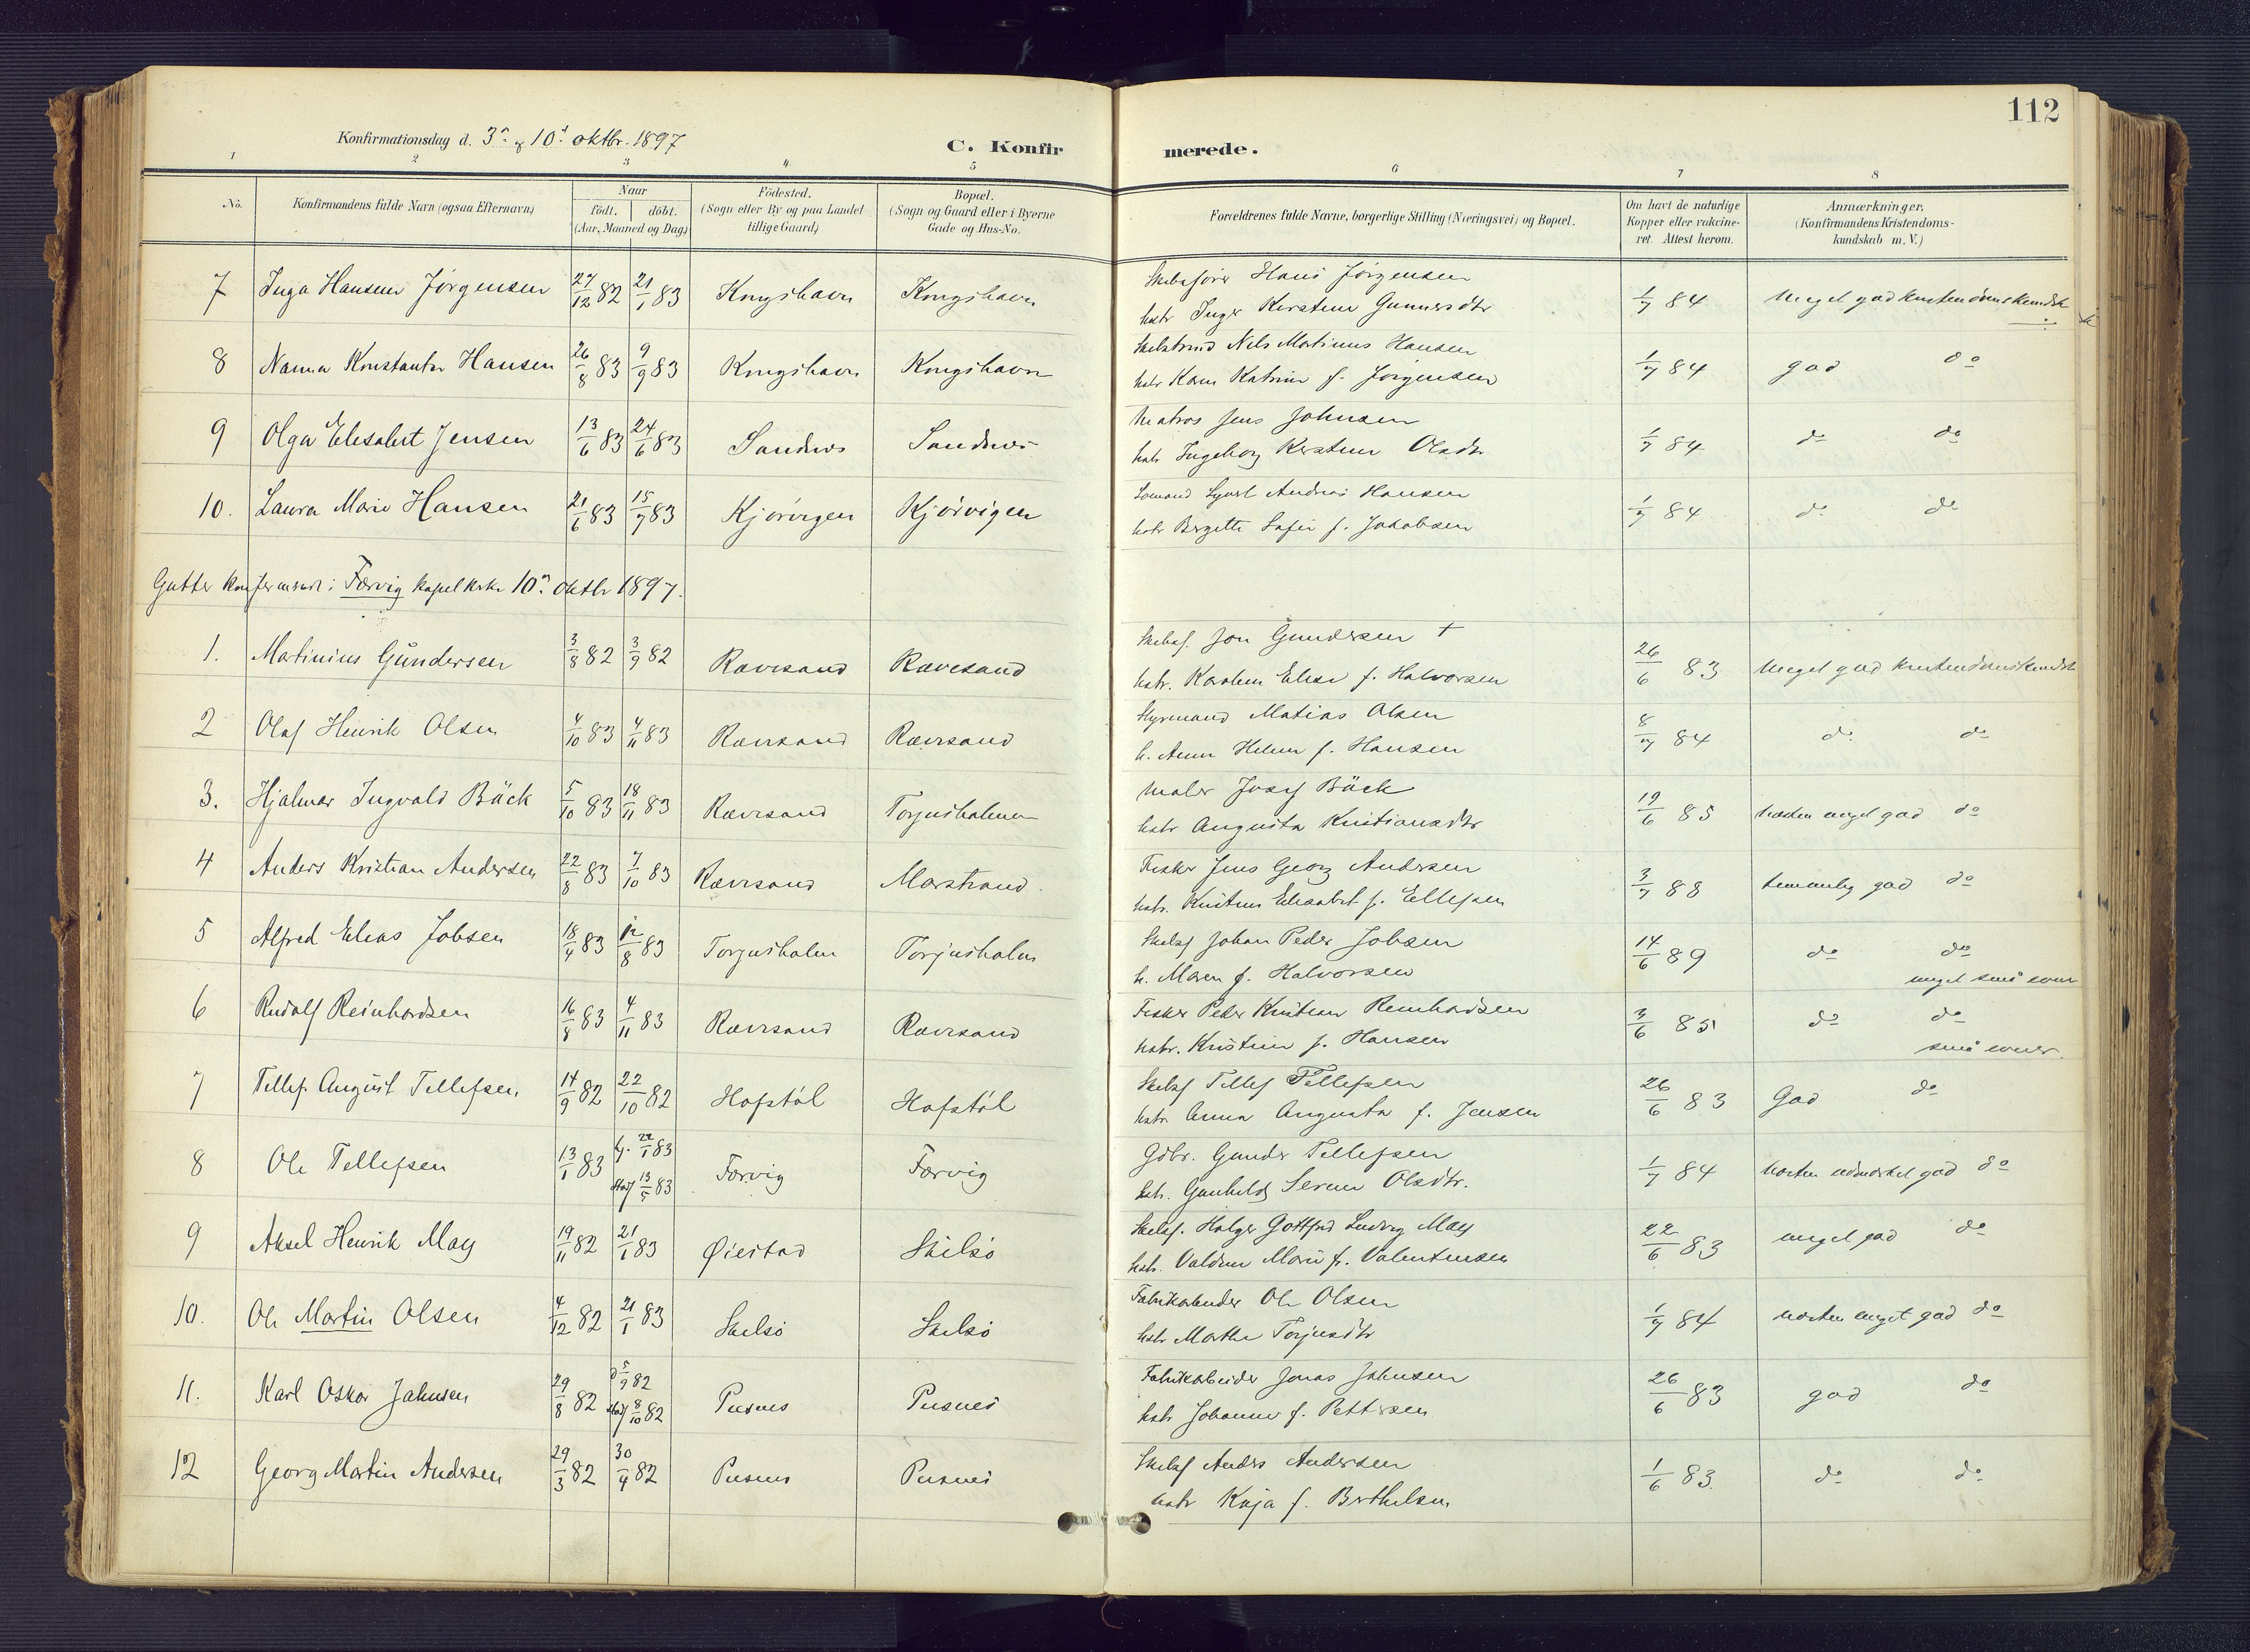 112
Konfirmationsdag d. 3. og 10. oktbr. 1897
C. Konfirmerede.
1 2 3 4 5 6 7 8
No.
Konfirmandens fulde Navn (ogsaa Efternavn)
Naar
födt. döbt.
(Aar, Maaned og Dag)
Födested.
(Sogn eller By og paa Landet
tillige Gaard)
Bopæl.
(Sogn og Gaard eller i Byerne
Gade og Hus-No.
Forældrenes fulde Navne, borgerlige Stilling (Næringsvei) og Bopæl.
Om havt de naturlige
Kopper eller vakcine-
ret. Attest herom.
Anmærkninger.
(Konfirmandens Kristendoms-
kundskab m. V.)
7 Inga Hansen Jørgensen 27/12 82 21/1 83 Kongshavn Kongshavn
Hans Jørgensen
Inger Kirstine Gunnersdtr 1/7 84 Meget god kristendomskundsk
8 Nanna Konstantin Hansen 26/8 83 9/9 83 Kongshavn Kongshavn
Nils Martinus Hansen
Katrine f. Jørgensen 1/7 84 god do
9 Olga Elisabet Jensen 13/6 83 24/6 83 Sandnes Sandnes
Matros Jens Johnsen
Ingeborg Kirstine Olsdtr 1/7 84 do do
10. Laura Marie Hansen 21/6 83 15/7 83 Kjørvigen Kjørvigen
Andreas Hansen
Birgitte Sofie f. Jakobsen 1/7 84 do do
Gutter konfirmeret i Færvig kapelkirke 10. oktbr 1897.
1. Martinius Gundersen 3/8 82 3/9 82 Rævesand Rævesand
Skibsf. Jon Gundersen +
hstr. Karoline Elise f. Halvorsen 26/6 83 Meget god kristendomskundsk
2 Olaf Henrik Olsen 4/10 83 4/11 83 Rævesand Rævesand
Styrmand Matias Olsen
h. Anne Helene f. Hansen 8/7 84 do do
3. Hjalmar Ingvald Bäck 5/10 83 18/11 83 Rævesand Torjusholmen
Maler Josef Bäck
hstr Augusta Kristiansdtr 19/6 85 næsten meget god do
4 Anders Kristian Andersen 22/8 83 7/10 83 Rævesand Marstrand
Fisker Jens Georg Andersen
hstr. Kristine Elisabet f. Ellefsen 3/7 88 temmelig god do
5 Alfred Elias Jobsen 18/4 83 12/8 83 Torjusholm Torjusholm
Skibsf Johan Peder Jobsen
h. Maren f. Halvorsen 14/6 89 do do
meget små evner
6 Rudolf Reinhardsen 16/8 83 4/11 83 Rævesand Rævesand
Fisker Peder Kristian Reinhardsen
hstr. Kristine f. Hansen 3/6 85 do do
små evner.
7 Tellef August Tellefsen 14/9 82 22/10 82 Hofstøl Hofstøl
Skibsf Tellef Tellefsen
hstr Anna Augusta f. Jensen 26/6 83 God do
8 Ole Tellefsen 13/1 83 hj. 22/1 83 Færvig Færvig
Stadf 13/5 83
Gdbr. Gunder Tellefsen
hstr. Gunhild Serine Olsdtr. 1/7 84 næsten udmærket god do
9 Aksel Henrik May 19/11 82 21/1 83 Øiestad Skilsø
Skibsf. Holger Gottfred Ludvig May
hstr. Valdine Marie f. Valentinsen 22/6 83 meget god do
10. Ole Martin Olsen 4/12 82 21/1 83 Skilsø Skilsø
Fabrikarbeider Ole Olsen
hstr Marthe Torjusdtr 1/7 84 næsten meget god do
11. Karl Oskar Johnsen 29/8 82 5/9 82 Pusnes Pusnes
Stadf 8/10 82
Fabrikarbeider Jonas Johnsen
hstr Johanne f. Pettersen 26/6 83 god do
12 Georg Martin Andersen 29/3 82 30/4 82 Pusnes Pusnes
Skibsf Anders Andersen
hstr Kaja f. Berthelsen 1/6 83. do do